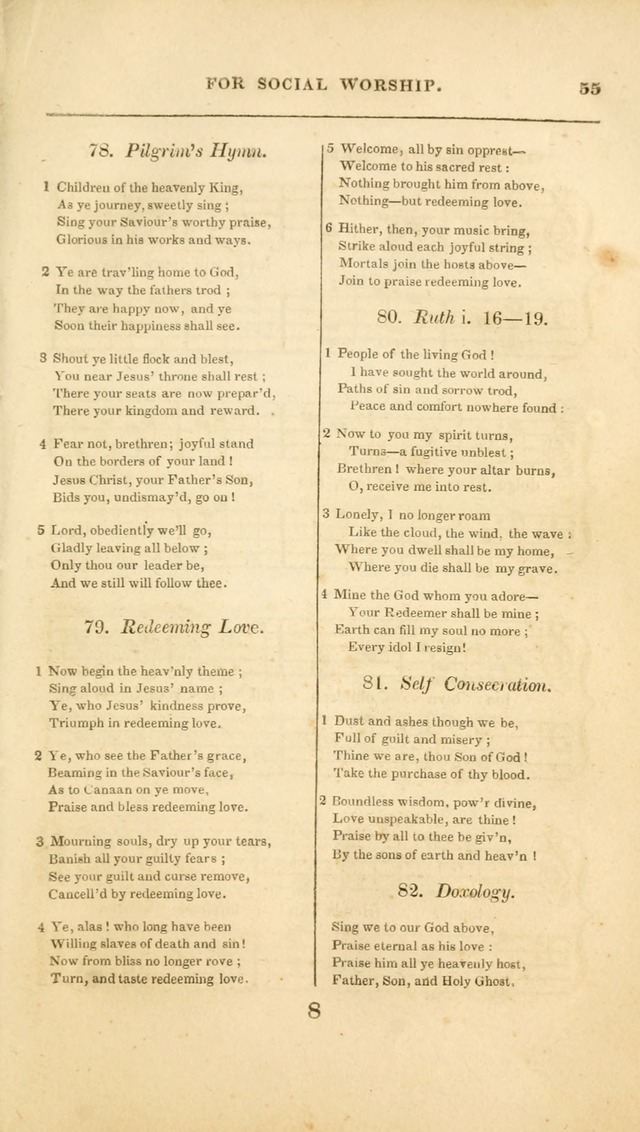 FOR SOCIAL WORSHIP. 55
78. Pilgrim's Hymn.
1 Children of the heavenly King,
As ye journey, sweetly sing ;
Sing your Saviour's worthy praise,
Glorious in his works and ways.
2 Ye are trav'ling home to God,
In the way the fathers trod ;
They are happy now, and ye
Soon their happiness shall see.
3 Shout ye little flock and blest,
You near Jesus' throne shall rest ;
There your seats are now prepar'd,
There your kingdom and reward.
4 Fear not, brethren; joyful stand
On the borders of your land !
Jesus Christ, your Father's Son,
Bids you, undismay'd, go on !
5 Lord, obediently we'll go,
Gladly leaving all below ;
Only thou our leader be,
And we still will follow thee.
79. Redeeming Love.
1 Now begin the heav'nly theme ;
Sing aloud in Jesus' name ;
Ye, who Jesus' kindness prove,
Triumph in redeeming love.
2 Ye, who see the Father's grace,
Beaming in the Saviour's face,
As to Canaan on ye move,
Praise and bless redeeming love.
3 Mourning souls, dry up your tears,
Banish all your guilty fears ;
See your guilt and curse remove,
Cancell'd by redeeming love.
4 Ye, alas ! who long have been
Willing slaves of death and sin!
Now from bliss no longer rove ;
Turn, and taste redeeming love.
5 Welcome, all by sin opprest—
Welcome to his sacred rest :
Nothing brought him from above,
Nothing—but redeeming love.
6 Hither, then, your music bring,
Strike aloud each joyful string ;
Mortals join the hosts above—
Join to praise redeeming love.
80. Ruth i. 16—19.
1 People of the living God !
I have sought the world around,
Paths of sin and sorrow trod,
Peace and comfort nowhere found :
2 Now to you my spirit turns,
Turns—a fugitive unblest ;
Brethren ! where your altar burns,
O, receive me into rest.
3 Lonely, I no longer roam
Like the cloud, the wind, the wave :
Where you dwell shall be my home,
Where you die shall be my grave.
4 Mine the God whom you adore—
Your Redeemer shall be mine ;
Earth can fill my soul no more ;
Every idol I resign!
81. Self Consecration.
1 Dust and ashes though we be,
Full of guilt and misery ;
Thine we are, thou Son of God !
Take the purchase of thy blood.
2 Boundless wisdom, pow'r divine,
Love unspeakable, are thine !
Praise by all to thee be giv'n,
By the sons of earth and heav'n !
82. Doxology.
Sing we to our God above,
Praise eternal as his love :
Praise him all ye heavenly host,
Father, Son, and Holy Ghost.
8